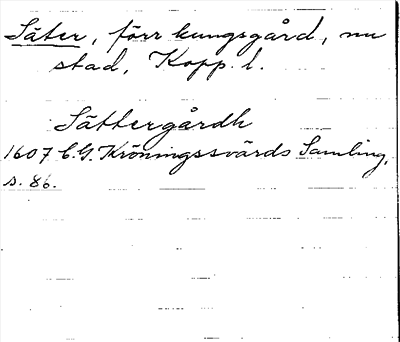 Säter, förr kungsgård, nu
stad, Kopp. l.
Sättergårdh
1607 C. G. Kröningssvärds Samling,
s. 86.